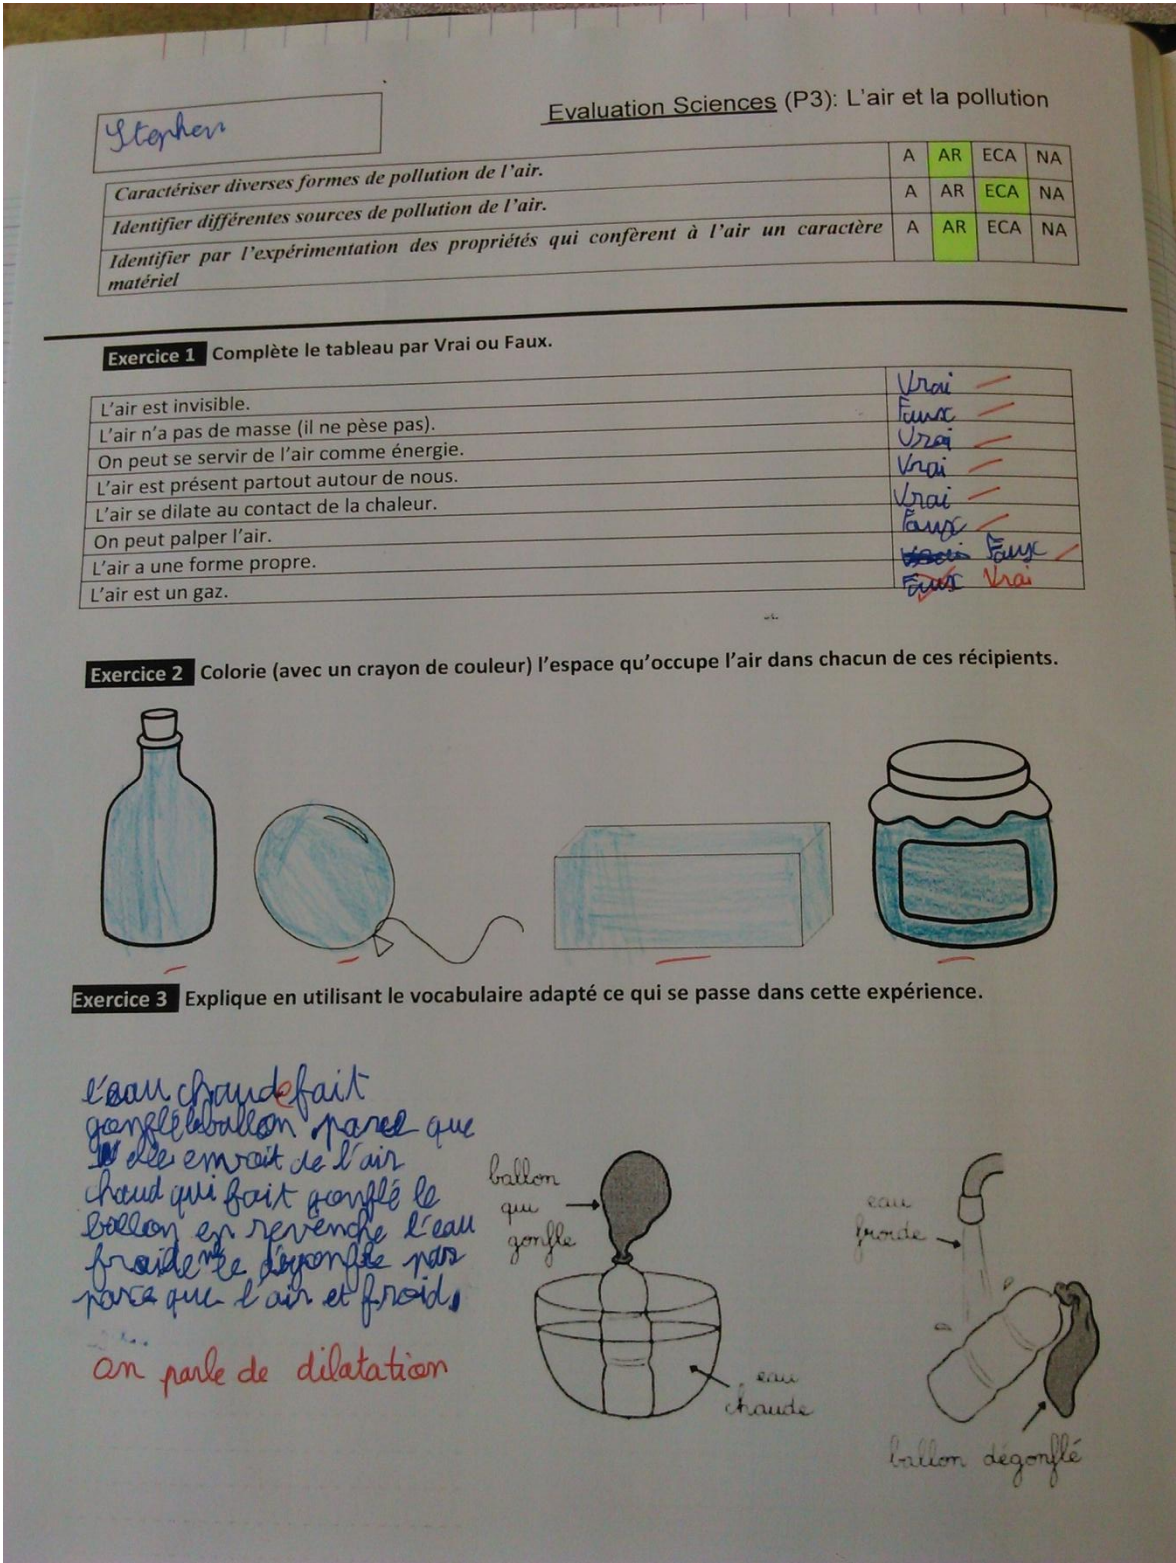 Stephen
Evaluation Sciences (P3): L'air et la pollution
Caractériser diverses formes de pollution de l'air. A AR ECA NA
Identifier différentes sources de pollution de l'air. A AR ECA NA
Identifier par l'expérimentation des propriétés qui confèrent à l'air un caractère matériel A AR ECA NA
Exercice 1 Complète le tableau par Vrai ou Faux.
L'air est invisible. Vrai
L'air n'a pas de masse (il ne pèse pas). Faux
On peut se servir de l'air comme énergie. Vrai
L'air est présent partout autour de nous. Vrai
L'air se dilate au contact de la chaleur. Vrai
On peut palper l'air. Faux
L'air a une forme propre. Faux
L'air est un gaz. Faux Vrai
Exercice 2 Colorie (avec un crayon de couleur) l'espace qu'occupe l'air dans chacun de ces récipients.
Exercice 3 Explique en utilisant le vocabulaire adapté ce qui se passe dans cette expérience.
l'eau chaude fait
gonflé le ballon parce que
elle envoit de l'air
chaud qui fait gonflé le
ballon en revenche l'eau
froide le dégonfle pas
parce que l'air et froid.
on parle de dilatation
ballon
qui
gonfle
eau
chaude
eau
froide
ballon dégonflé